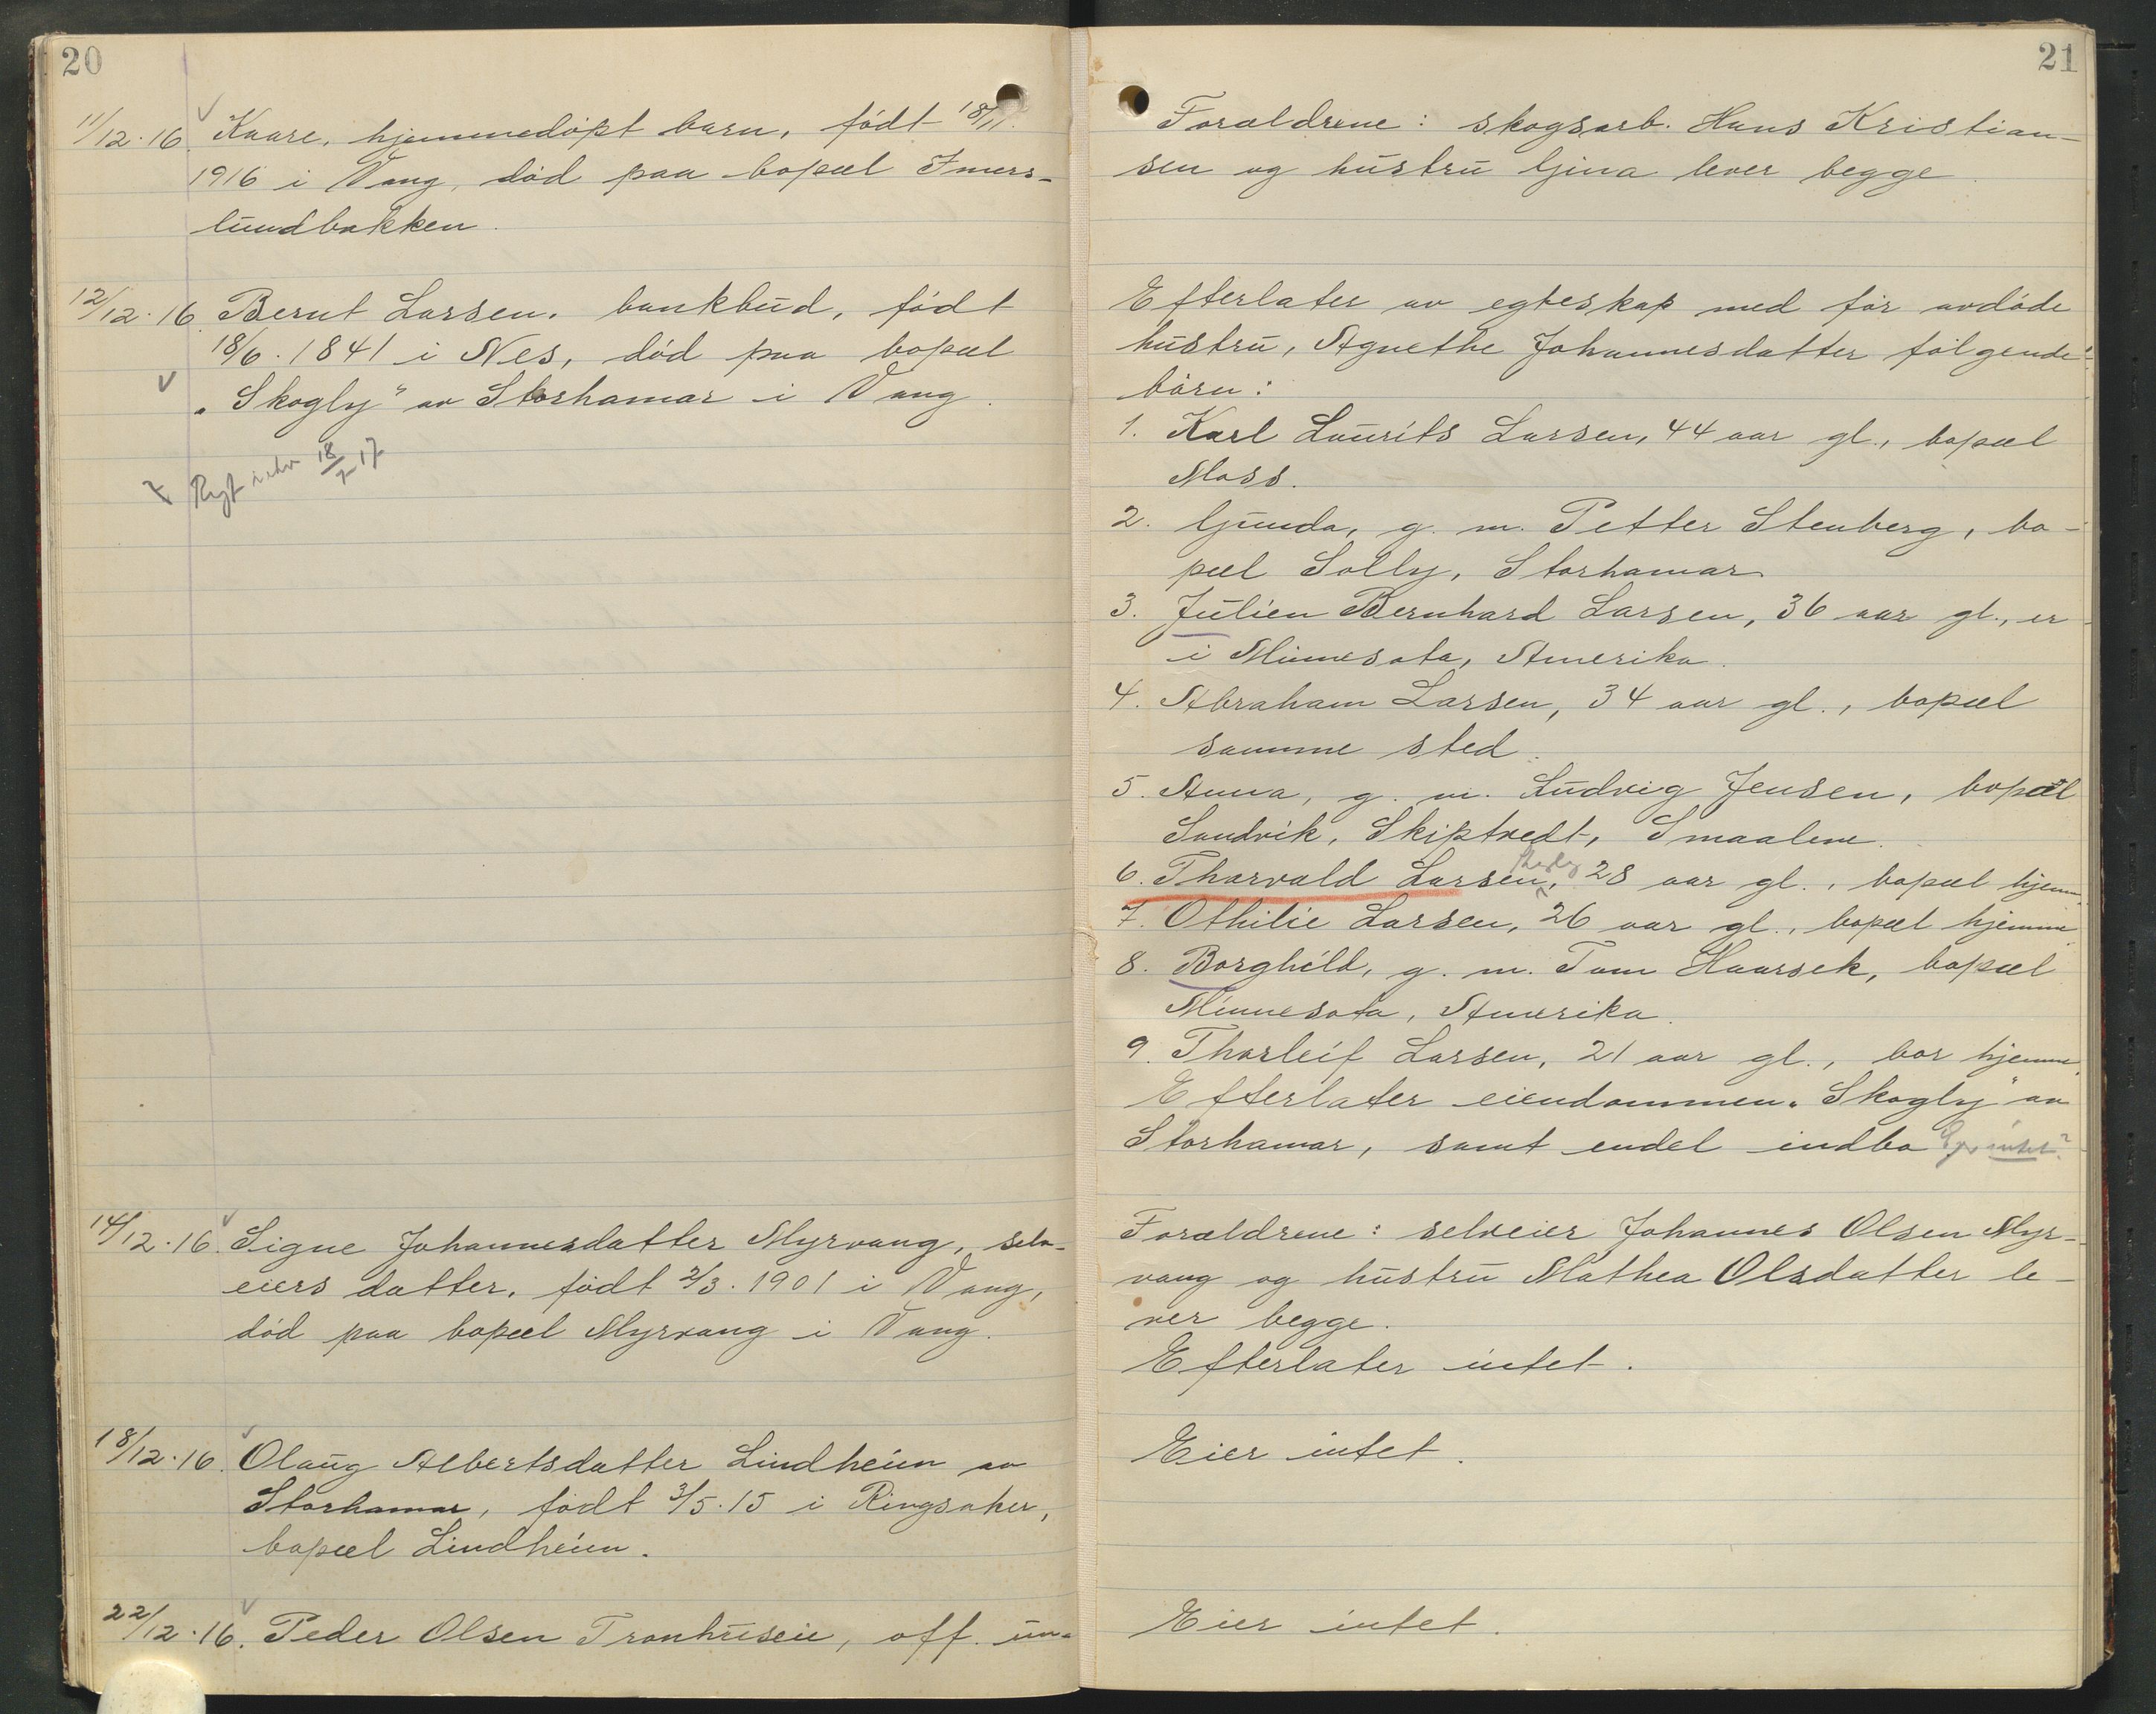 20
11/12·16. Kaare, hjemmedöpt barn, födt 18/11.
1916 i Vang, död paa bopæl Imers-
lundbakken.
12/12·16. Bernt Larsen, bankbud, födt
18/6. 1841 i Nes, död paa bopæl
„Skogly" av Storhamar i Vang.
18/7 17
14/12·16. Signe Johannesdatter Myrvang, selv-
eiers datter, födt 2/3. 1901 i Vang,
död paa bopæl Myrvang i Vang.
18/12·16. Olaug Albertsdatter Lindheim av
Storhamar, födt 3/5. 15 i Ringsaker,
bopæl Lindheim.
22/12·16. Peder Olsen Tronhuseie, off. un-
21
Forældrene: skogsarb. Hans Kristian-
sen og hustru Gina lever begge.
Efterlater av egteskap med för avdöde
hustru, Agnethe Johannesdatter fölgende
börn:
1. Karl Laurits Larsen, 44 aar gl., bopæl
Moss.
2. Gunda, g. m. Petter Stenberg, bo-
pæl Solly, Storhamar
3. Julien Bernhard Larsen, 36 aar gl., er
i Minnesota, Amerika.
4. Abraham Larsen, 34 aar gl., bopæl
samme sted.
5. Anna, g. m. Ludvig Jensen, bopæl
Sandvik, Skiptvedt, Smaalene.
6. Thorvald Larsen, 28 aar gl., bopæl hjem
7. Othilie Larsen, 26 aar gl., bopæl hjemme
8. Borghild, g. m. Tom Haarsek, bopæl
Minnesota, Amerika.
9. Thorleif Larsen, 21 aar gl., bor hjemme.
Efterlater eiendommen „Skogly" av
Storhamar, samt endel indbo
Forældrene: selveier Johannes Olsen Myr-
vang og hustru Mathea Olsdatter le-
ver begge.
Efterlater intet.
Eier intet.
Eier intet.